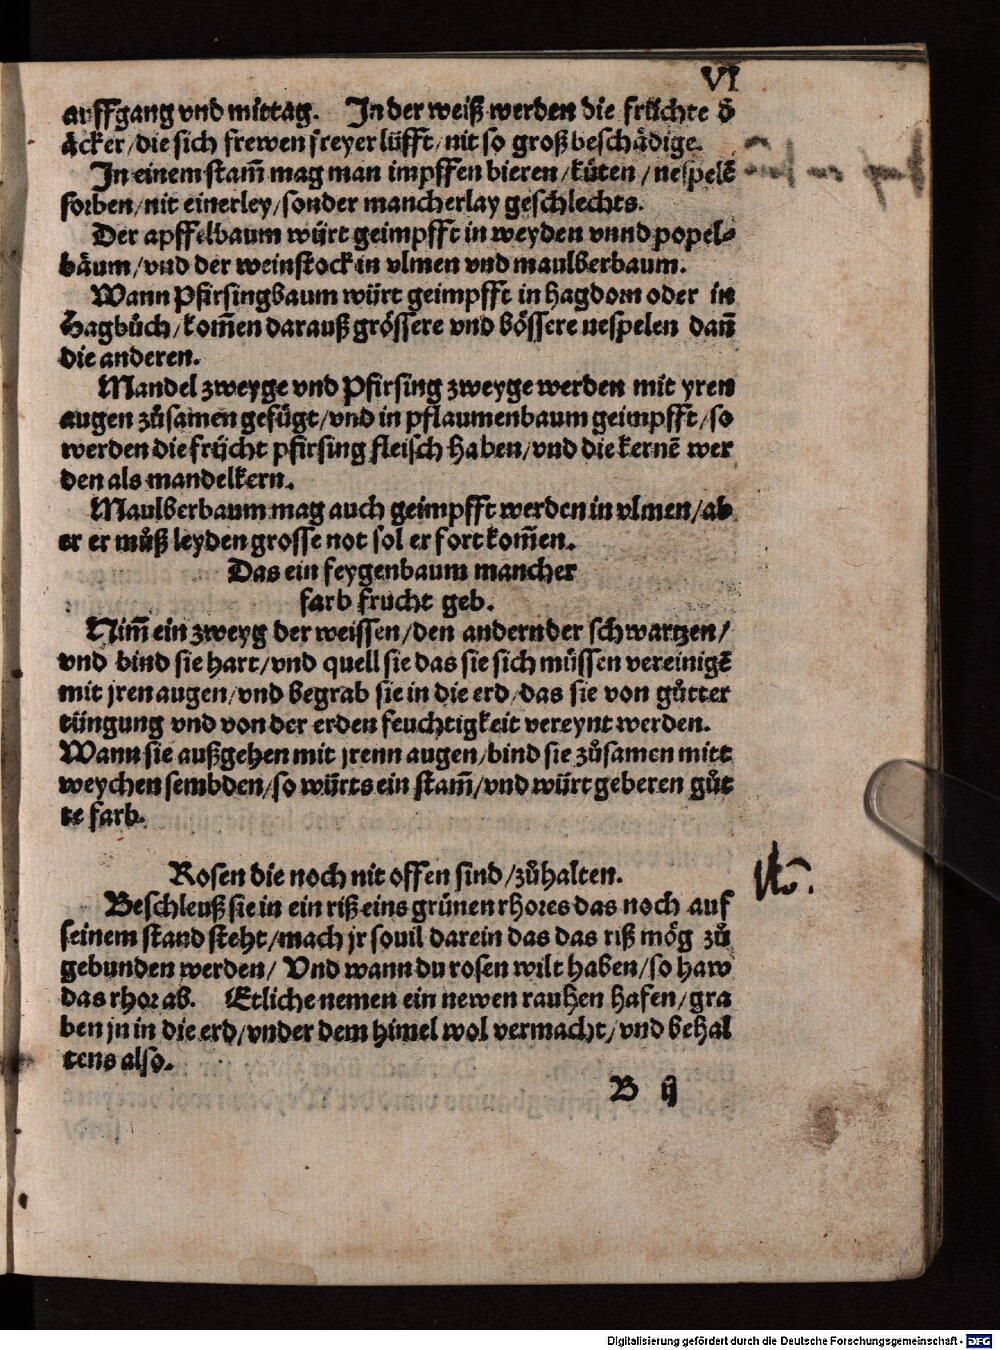 VI
auffgang vnd mittag. In der weiß werden die früchte ď
äcker/die sich frewen freyer lüfft/nit so groß beschädige.
In einem stam̃ mag man impffen bieren/küten/nespelẽ
sorben/nit einerley/sonder mancherlay geschlechts.
Der apffelbaum würt geimpfft in weyden vnnd popel⸗
bäum/vnd der weinstock in vlmen vnd maulberbaum.
Wann Pfirsingbaum würt geimpfft in hagdorn oder in
Hagbůch/kom̃en darauß grössere vnd bössere nespelen dañ
die anderen.
Mandel zweyge vnd Pfirsing zweyge werden mit yren
augen zůsamen gefügt/vnd in pflaumenbaum geimpfft/so
werden die frücht pfirsing fleisch haben/vnd die kernẽ wer
den als mandelkern.
Maulberbaum mag auch geimpfft werden in vlmen/ab
er er můß leyden grosse not sol er fort kom̃en.
Das ein feygenbaum mancher
farb frucht geb.
Nim̃ ein zweyg der weissen/den andern der schwartzen/
vnd bind sie hart/vnd quell sie das sie sich müssen vereinigẽ
mit jren augen/vnd begrab sie in die erd/das sie von gůtter
tüngung vnd von der erden feuchtigkeit vereynt werden.
Wann sie außgehen mit jrenn augen/bind sie zůsamen mitt
weychen sembden/so würts ein stam̃/vnd würt geberen gůt
te farb.
Rosen die noch nit offen sind/zůhalten.
Beschleuß sie in ein riß eins grünen rhores das noch auf
seinem stand steht/mach jr souil darein das das riß mög zů
gebunden werden/ Vnd wann du rosen wilt haben/so haw
das rhor ab. Etliche nemen ein newen rauhen hafen/gra
ben jn in die erd/vnder dem himel wol vermacht/vnd behal
tens also.
B ij
Digitalisierung gefördert durch die Deutsche Forschungsgemeinschaft - DFG